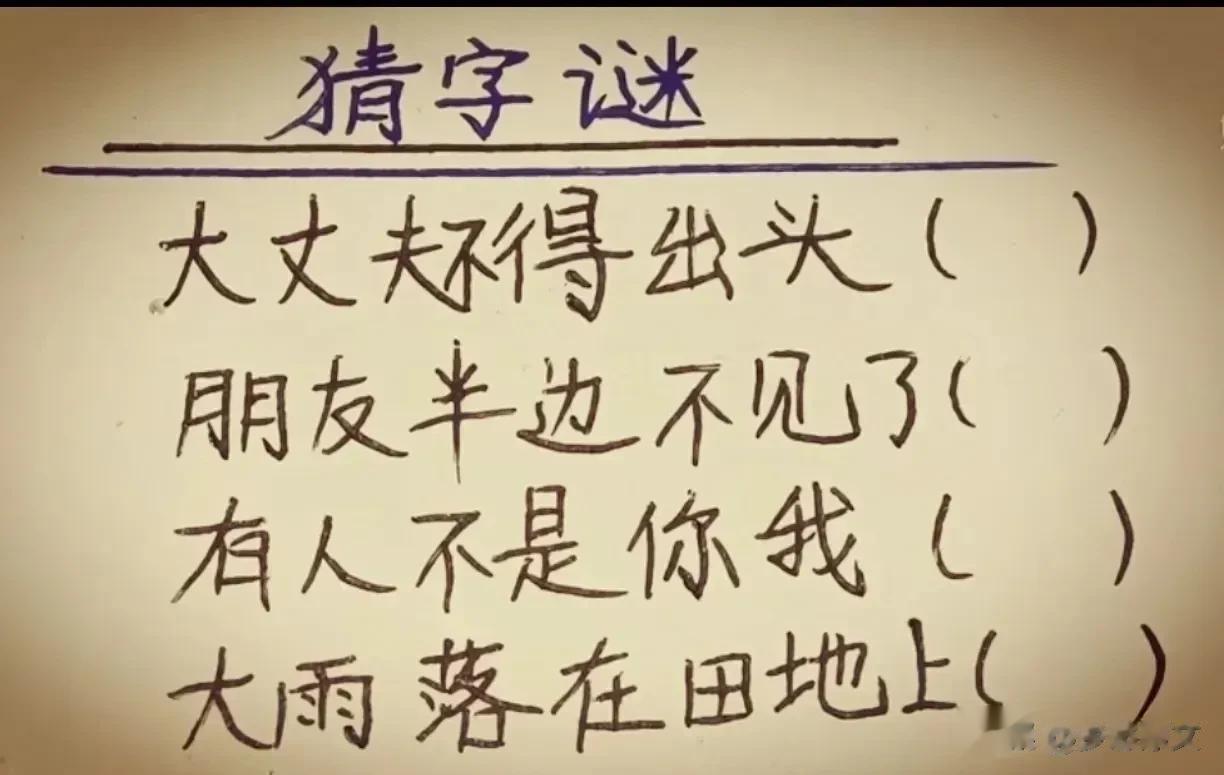 猜字谜
大丈夫不得出头（ ）
朋友半边不见了（ ）
有人不是你我（ ）
大雨落在田地上（ ）